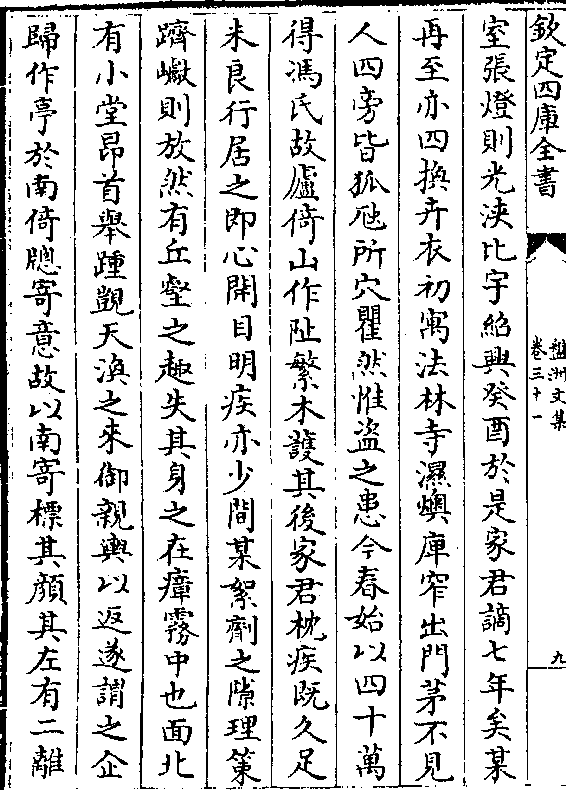 欽定四庫全書
盤洲文集
卷三十一
九
室張燈則光浹比宇紹興癸酉於是家君謫七年矣某
再至亦四換卉衣初寓法林寺濕燠庳窄出門茅不見
人四旁皆狐虺所穴瞿然惟盜之患今春始以四十萬
得馮氏故廬倚山作阯繁木護其後家君枕疾既久足
未良行居之即心開目明疾亦少間某絮劑之隙理䇿
躋巘則放然有丘壑之趣失其身之在瘴霧中也面北
有小堂昂首舉踵覬天渙之來御親輿以返遂謂之企
歸作亭於南倚牕寄意故以南寄標其顏其左有二離